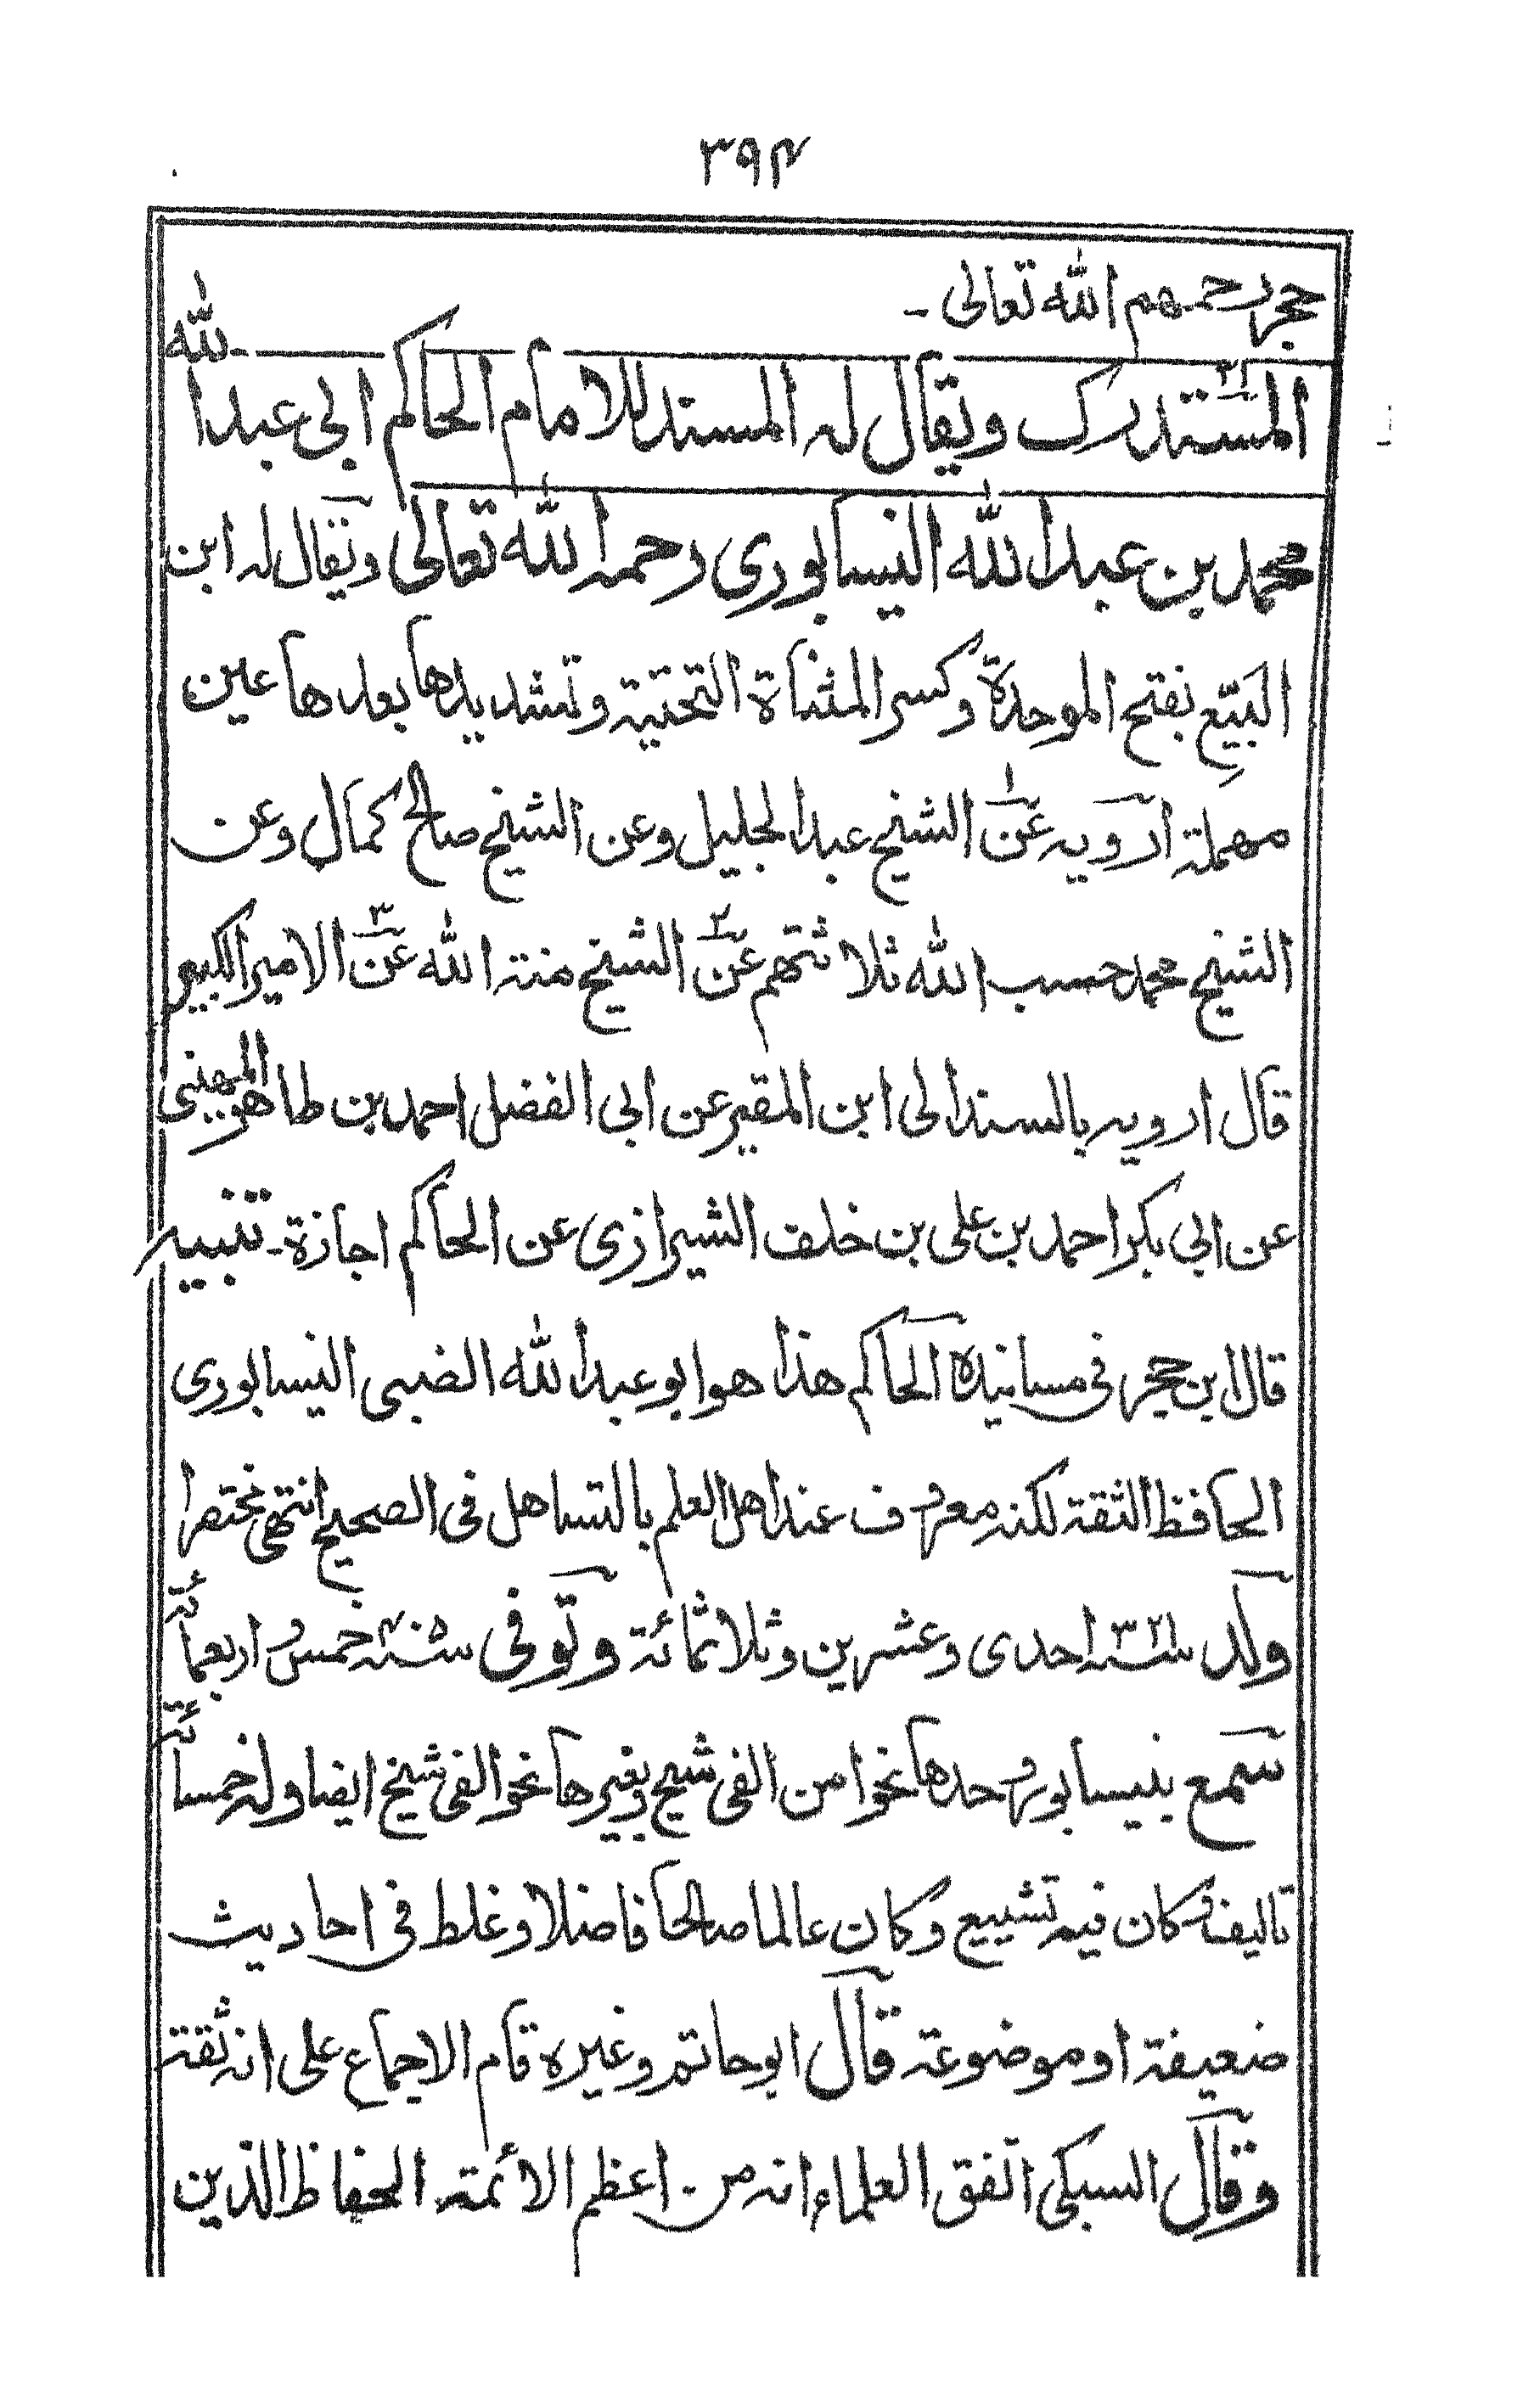 ٣٩٤
حجر رحمهم الله تعالى -
المستدرك ويقال له المسند للامام الحاكم ابي عبد الله
محمد بن عبد الله النيسابوري رحمه الله تعالى ويقال له ابن
البيّع بفتح الموحدة وكسر المثناة التحتية وتشديدها بعدها عين
مهملة ارويه عن١ الشيخ عبد الجليل وعن الشيخ صالح كمال وعن
الشيخ محمد حسب الله ثلاثتهم عن٢ الشيخ منة الله عن٣ الامير الكبير
قال ارويه بالسند الى ابن المقير عن ابي الفضل احمد بن طاهر المهيني
عن ابي بكر احمد بن علي بن خلف الشيرازي عن الحاكم اجازة - تنبيه
قال ابن حجر في مسانيده الحاكم هذا هو ابو عبد الله الضبي النيسابوري
الحافظ الثقة لكنه معروف عند اهل العلم بالتساهل في الصحيح انتهى مختصرا
ولد سنة ٣٢١ احدى وعشرين وثلاثمائة وتوفي سنة ٤٠٥ خمس و اربعمائة
سمع بنيسابور وحدها نحوا من الفي شيخ وبغيرها نحو الفي شيخ ايضا وله خمسمائة
تاليف وكان فيه تشييع وكان عالما صالحا فاضلا وغلط في احاديث
ضعيفة او موضوعة قال ابو حاتم وغيره قام الاجماع على انه ثقة
وقال السبكي اتفق العلماء انه من اعظم الائمة الحفاظ الذين